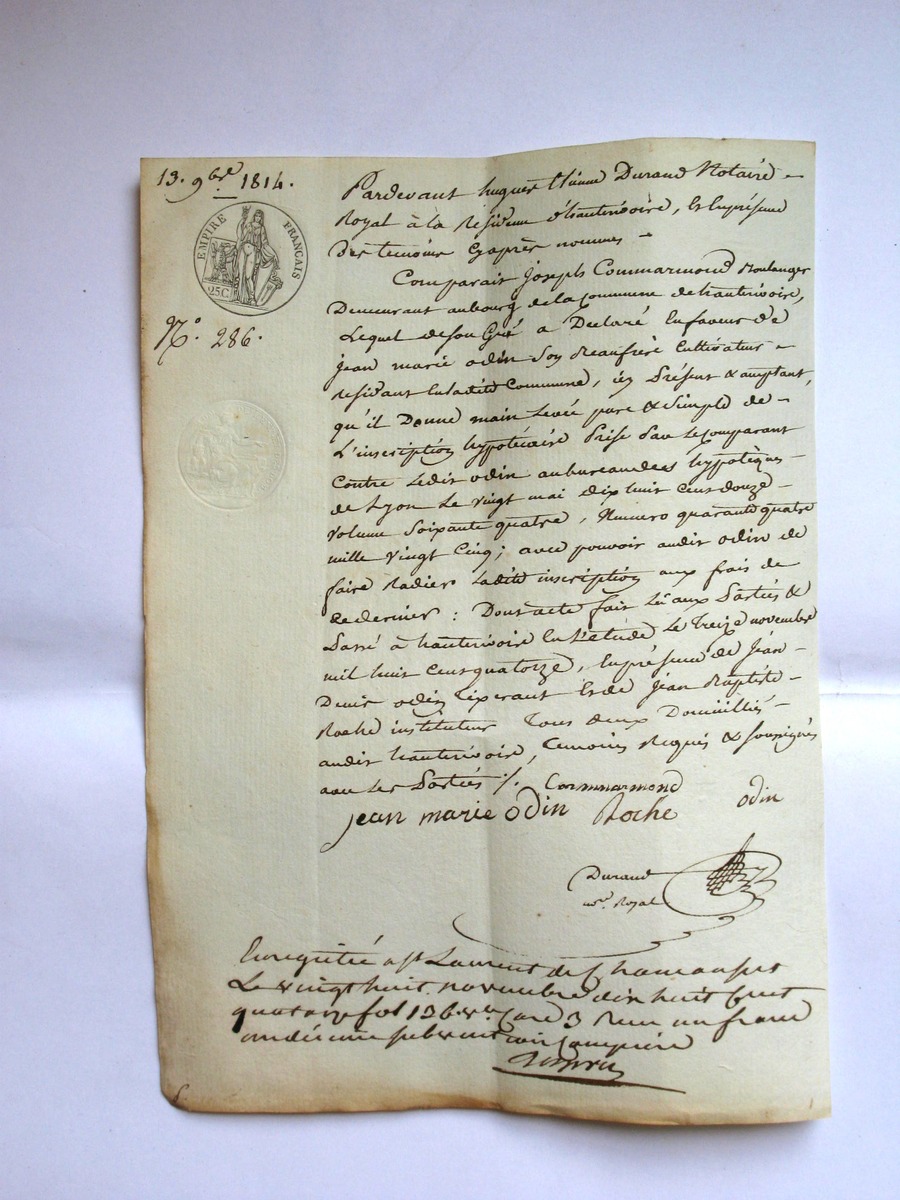 13. 9bre 1814.
EMPIRE FRANÇAIS
25C
N.o 286.
Pardevant hugues Etienne Durand Notaire
Royal à la Residence d'hauterivoire, & En présence
des temoins Cyaprès nommés
Comparait Joseph Commarmond Boulanger
Demeurant au bourg de la Commune de hauterivoire,
Lequel de son Gré a Declaré En faveur de
jean marie odin son Beaufrère Cultivateur
résidant En ladite Commune, icy Présent & acceptant,
qu'il Donne main Levée pure & Simple de
L'inscription hypotécaire Prise Par Le Comparant
Contre Ledit odin au bureau des hypotèques
de Lyon Le vingt mai dix huit cent douze
volume Soixante quatre, Numero quarante quatre
mille vingt Cinq; avec pouvoir audit odin de
faire Radier Ladite inscription aux frais de
ce dernier: Dont acte fait Lû aux Parties &
Passé à hauterivoire En L'etude Le Treize novembre
mil huit cent quatorze, En présence de Jean
Denis odin Tixerant & de Jean Baptiste
Roche instituteur Tous deux Domiciliés
audit hauterivoire, Temoins Requis & soussignés
avec Les Parties ./. Commarmond
jean marie odin Roche odin
Durand
no.re Royal
Enregistré a St Laurent de Chamousset
Le vingt huit novembre dix huit cent
quatorze fol 136 v.o Case 3 Recu un franc